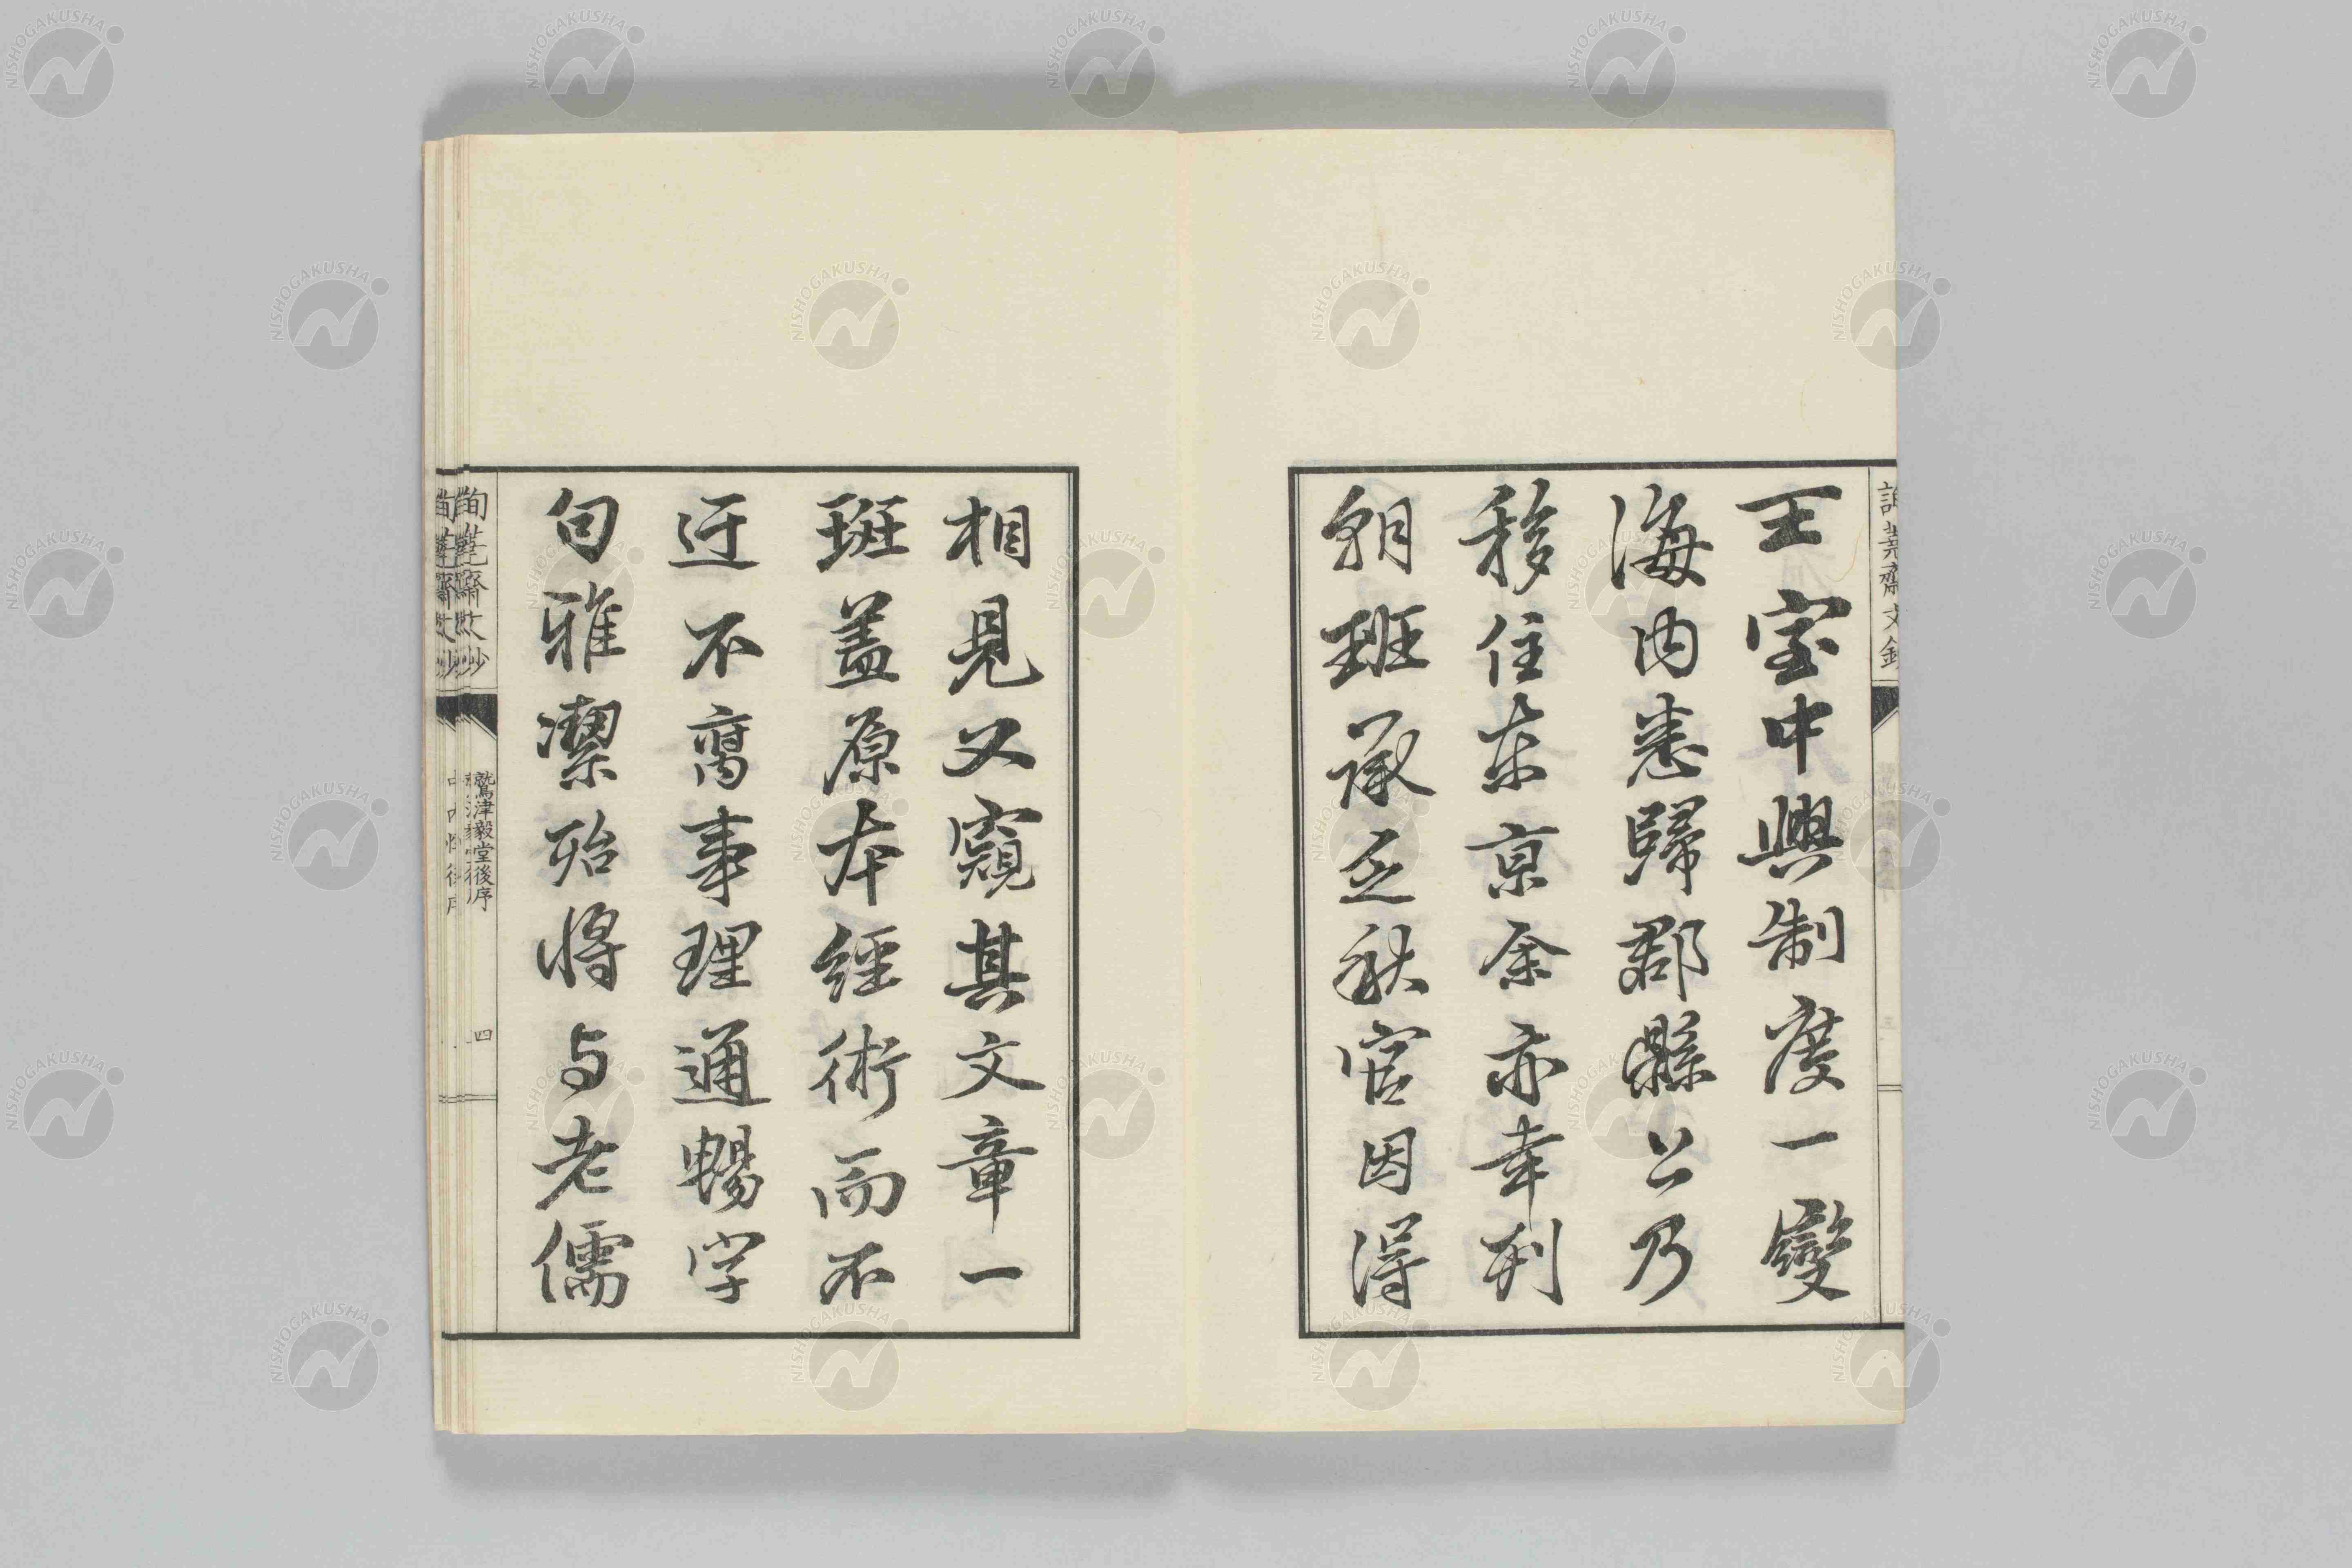 王室中興制度一變
海内悉歸郡縣公乃
移住東京余亦幸列
朝班承乏秋官因得
相見又窺其文章一
班蓋原本經術而不
迂不腐事理通暢字
句雅潔殆将与老儒
鷲津毅堂後序
四
NISHOGAKUSHA